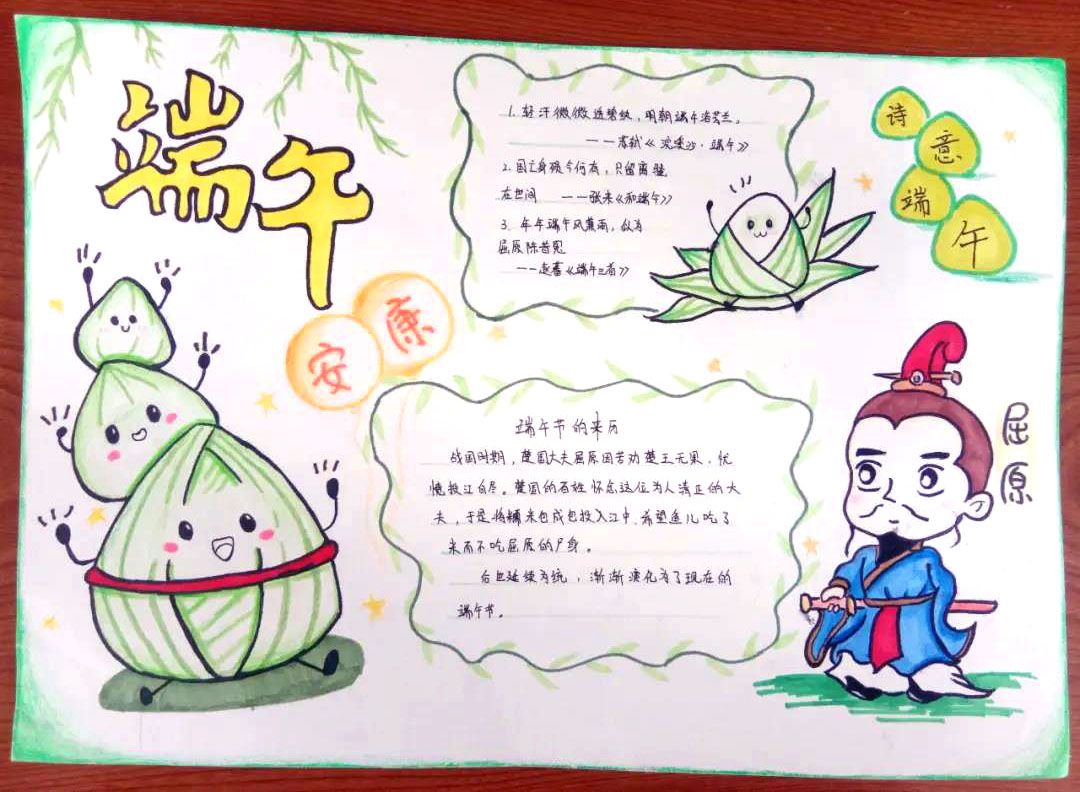 端午
安康
1. 轻汗微微透碧纨，明朝端午浴芳兰。
——苏轼《浣溪沙·端午》
2. 国亡身殒今何有，只留离骚
在世间 ——张耒《和端午》
3. 年年端午风兼雨，似为
屈原陈昔冤
——赵蕃《端午三首》
诗意端午
端午节的来历
战国时期，楚国大夫屈原因苦劝楚王无果，忧
愤投江自尽。楚国的百姓怀念这位为人清正的大
夫，于是将糯米包成包投入江中，希望鱼儿吃了
米而不吃屈原的尸身。
后世延续为统，渐渐演化为了现在的
端午节。
屈原